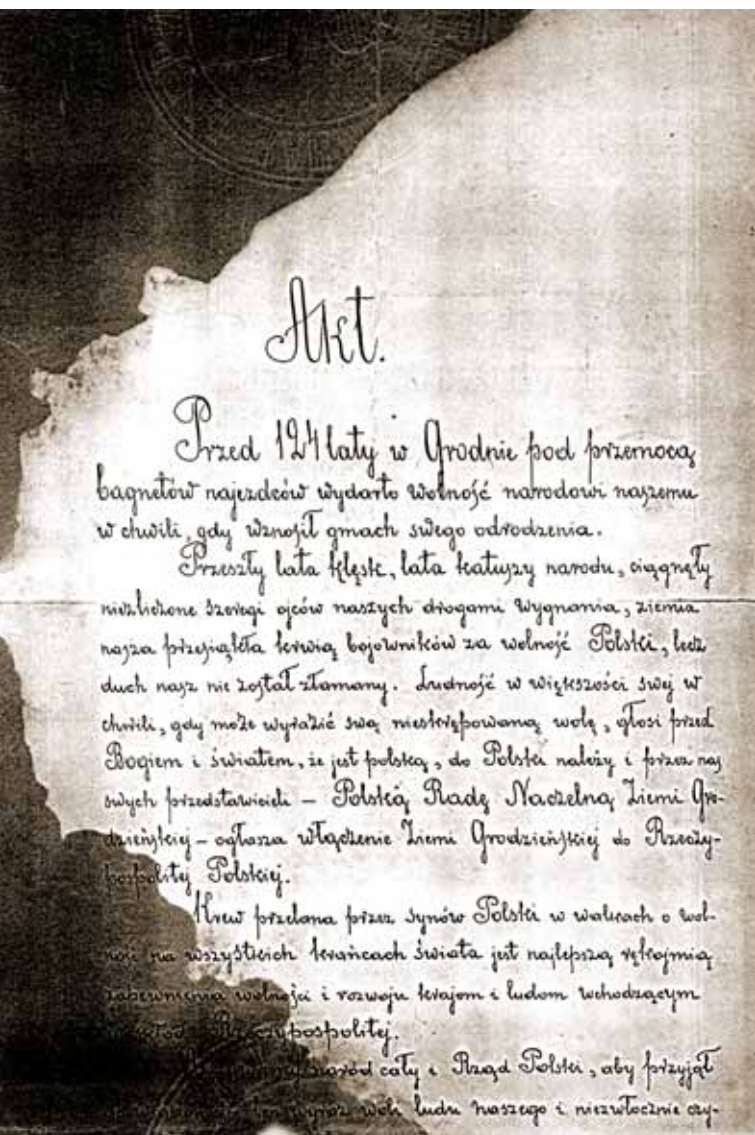 Akt.
Przed 124 laty w Grodnie pod przemocą
bagnetów najezdców wydarto wolność narodowi naszemu
w chwili, gdy wznosił gmach swego odrodzenia.
Przeszły lata klęsk, lata katuszy narodu, ciągnęły
niezliczone szeregi ojców naszych drogami wygnania, ziemia
nasza przesiąkła krwią bojowników za wolność Polski, lecz
duch nasz nie został złamany. Ludność w większości swej w
chwili, gdy może wyrazić swą nieskrępowaną wolę, głosi przed
Bogiem i światem, że jest polską, do Polski należy i przez nas
swych przedstawicieli – Polską Radę Naczelną Ziemi Gro-
dzieńskiej – ogłasza włączenie Ziemi Grodzieńskiej do Rzeczy-
pospolitej Polskiej.
Krew przelana przez synów Polski w walkach o wol-
ność na wszystkich krańcach świata jest najlepszą rękojmią
zapewnienia wolności i rozwoju krajom i ludom wchodzącym
Rzeczypospolitej.
naród cały i Rząd Polski, aby przyjął
ten wyraz woli ludu naszego i niezwłocznie czy-